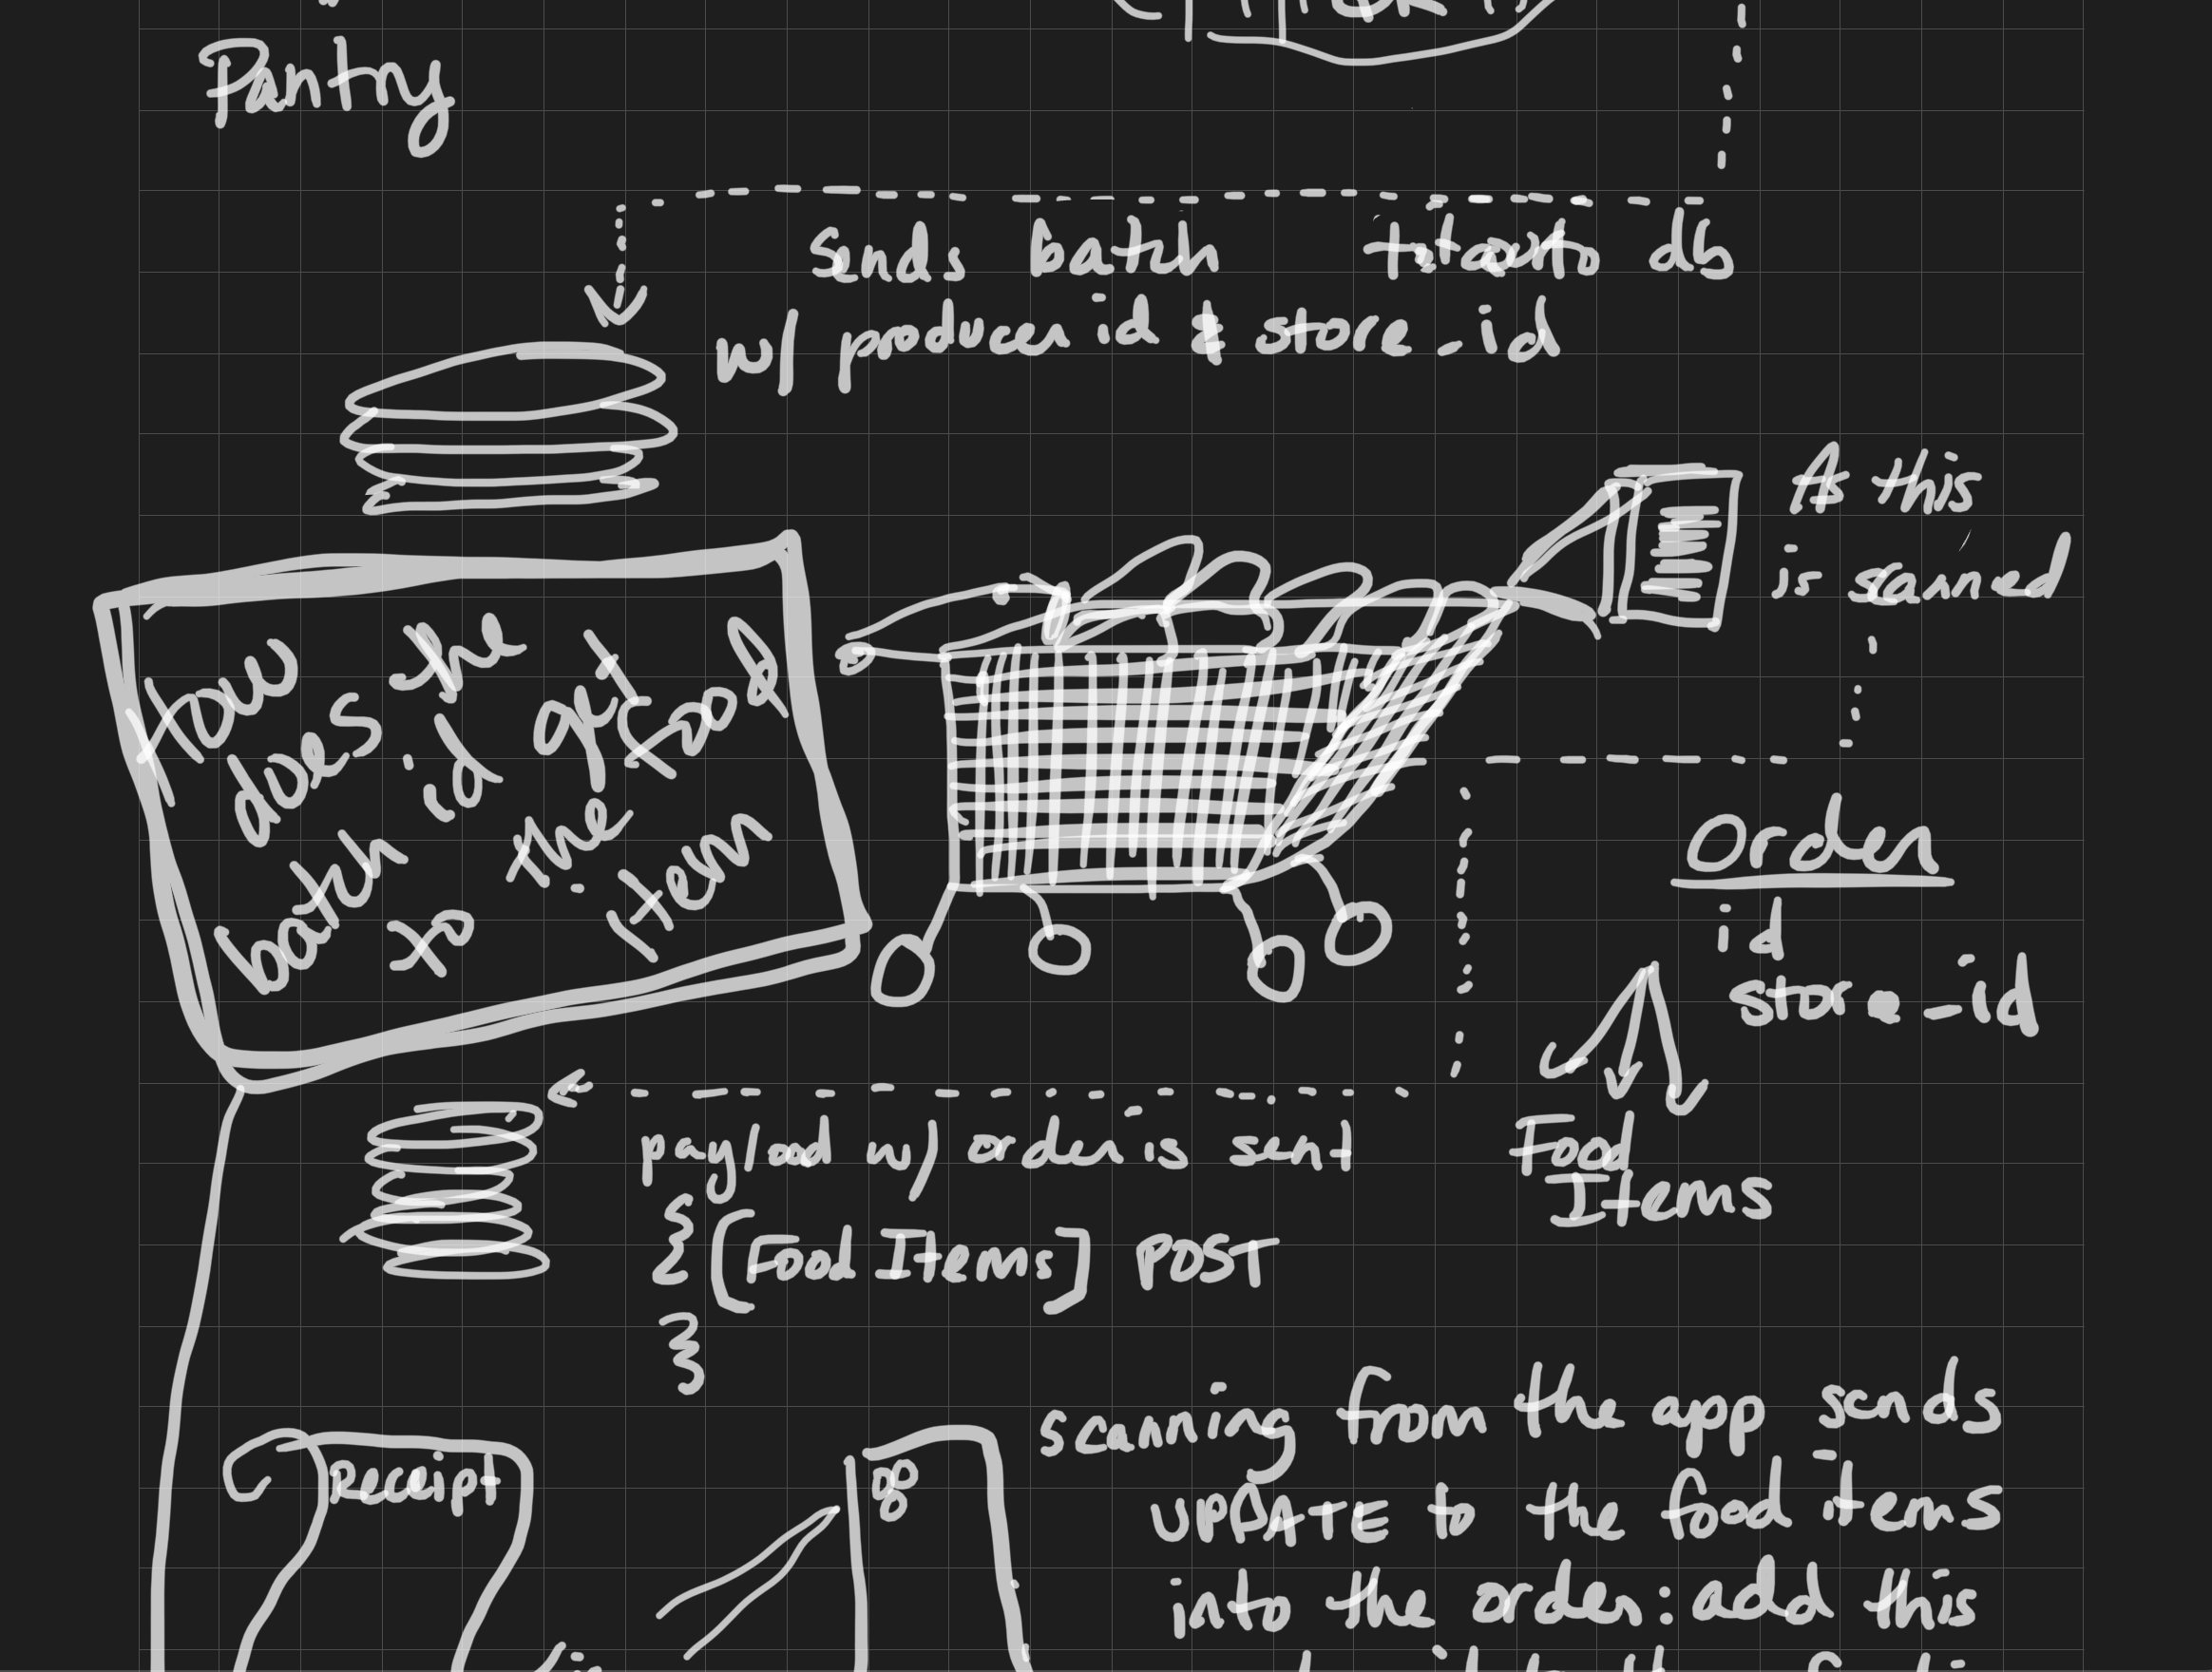 Pantry
sends batch into db
w/ producer id & store_id
As this
is scanned
How
does the
batch id get
to the food
item
order
id
store_id
Food
Items
payload w/ order is sent
{ [Food Items] POST
}
scanning from the app sends
UPDATE to the food items
into the order: add this
Receipt